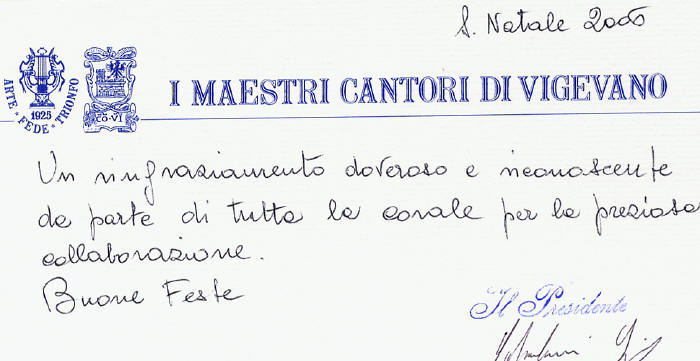 S. Natale 2000
ARTE FEDE TRIONFO
1925
CO·VI
I MAESTRI CANTORI DI VIGEVANO
Un ringraziamento doveroso e riconoscente
da parte di tutta la corale per la preziosa
collaborazione.
Buone Feste
Il Presidente